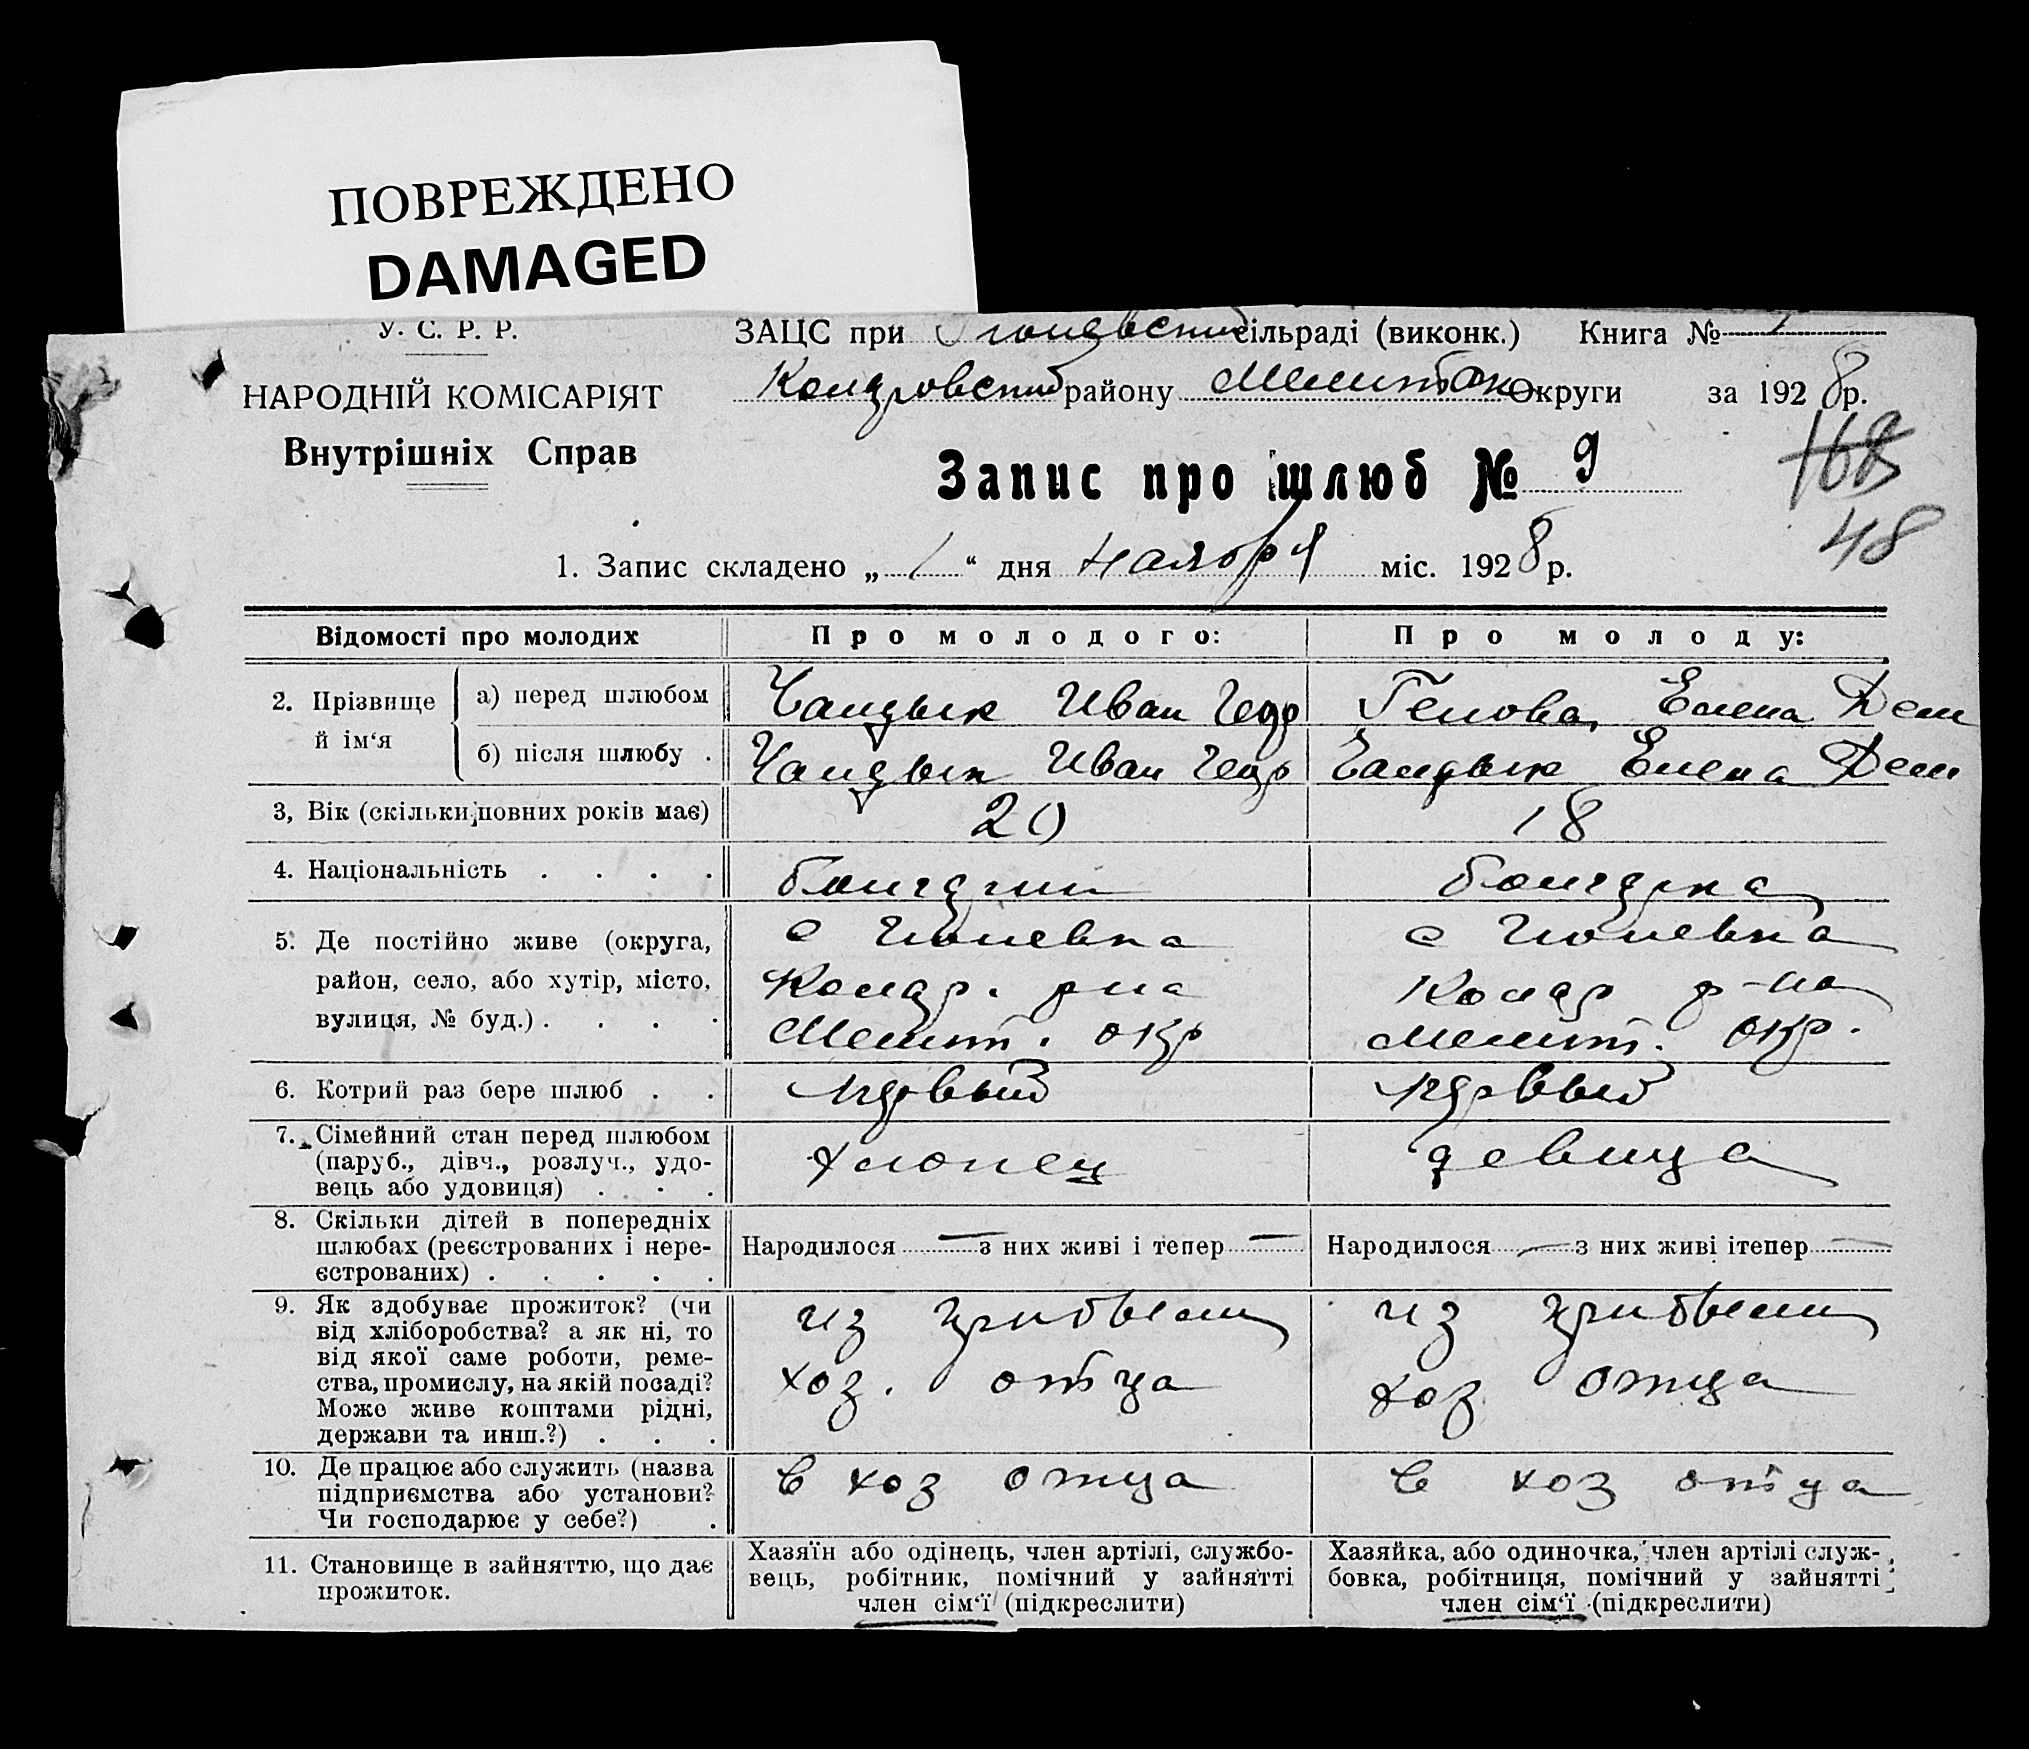 ПОВРЕЖДЕНО
DAMAGED
У. С. Р. Р.
ЗАЦС при сільраді (виконк.) Книга №
НАРОДНІЙ КОМІСАРІЯТ
району Мелитоп Округи за 1928 р.
Внутрішніх Справ
168
Запис про шлюб № 9
48
1. Запис складено „ 1 “ дня ноября міс. 1928 р.
Відомості про молодих Про молодого: Про молоду:
2. Прізвище й ім‘я
а) перед шлюбом Чандык Иван Генова Елена Дем
б) після шлюбу . Чандык Иван Чандык Елена Дем
3, Вік (скільки повних років має) 20 18
4. Національність . . . . болгарин болгарка
5. Де постійно живе (округа, район, село, або хутір, місто, вулиця, № буд.) . . . .
с Гюневка с Гюневка
р-на р-на
Мелит. окр Мелит. окр.
6. Котрий раз бере шлюб . . первый первый
7. Сімейний стан перед шлюбом
(паруб., дівч., розлуч., удо-
вець або удовиця) . . .
хлопец девица
8. Скільки дітей в попередніх
шлюбах (реєстрованих і нере-
єстрованих) . . . . .
Народилося — з них живі і тепер — Народилося — з них живі ітепер —
9. Як здобуває прожиток? (чи
від хліборобства? а як ні, то
від якої саме роботи, реме-
ства, промислу, на якій посаді?
Може живе коштами рідні,
держави та инш.?) . . .
из прибыли из прибыли
хоз. отца хоз отца
10. Де працює або служить (назва
підприємства або установи?
Чи господарює у себе?) .
в хоз отца в хоз отца
11. Становище в зайняттю, що дає
прожиток.
Хазяїн або одінець, член артілі, службо-
вець, робітник, помічний у зайнятті
член сім‘ї (підкреслити)
Хазяйка, або одиночка, член артілі служ-
бовка, робітниця, помічний у зайнятті
член сім‘ї (підкреслити)